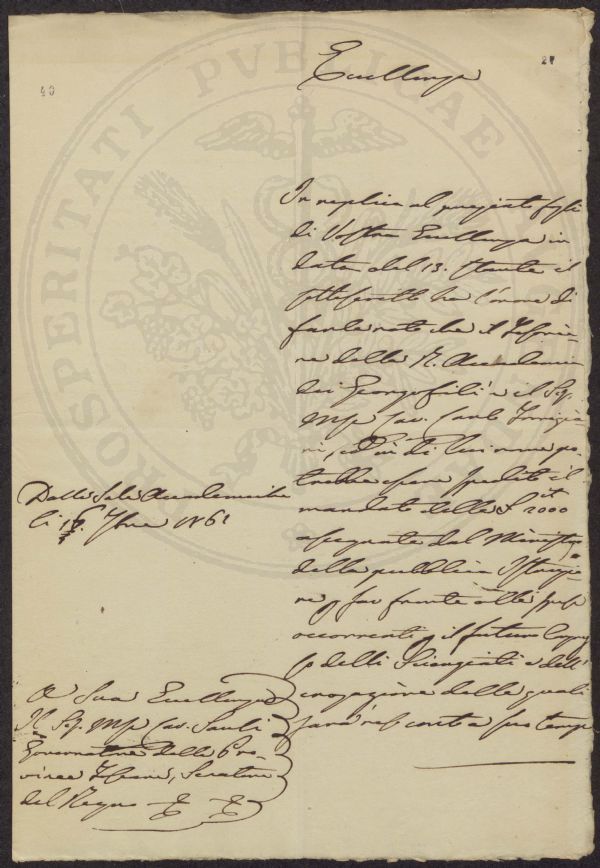 40
21
Eccellenza
In replica al pregiato foglio
di Vostra Eccellenza in
data del 13. stante il
sottoscritto ha l'onore di
farle noto che il Tesorie-
re della R. Accademia
dei Georgofili è il Sig.
Mse Cav. Carlo Torrigia-
ni, ed in di lui nome po-
trebbe essere spedito il
mandato delle £ 2000 it
assegnate dal Ministro
della pubblica Istruzio-
ne p far fronte alle spese
occorrenti p il futuro Congres
so delli Scienziati e dell'
erogazione delle quali
sarà reso conto a suo tempo
Dalle Sale Accademiche
li 1861
A Sua Eccellenza
Il Sig. Mse Cav. Sauli
Governatore delle Pro-
vince Toscane, Senatore
del Regno
PROSPERITATI PVBLICAE